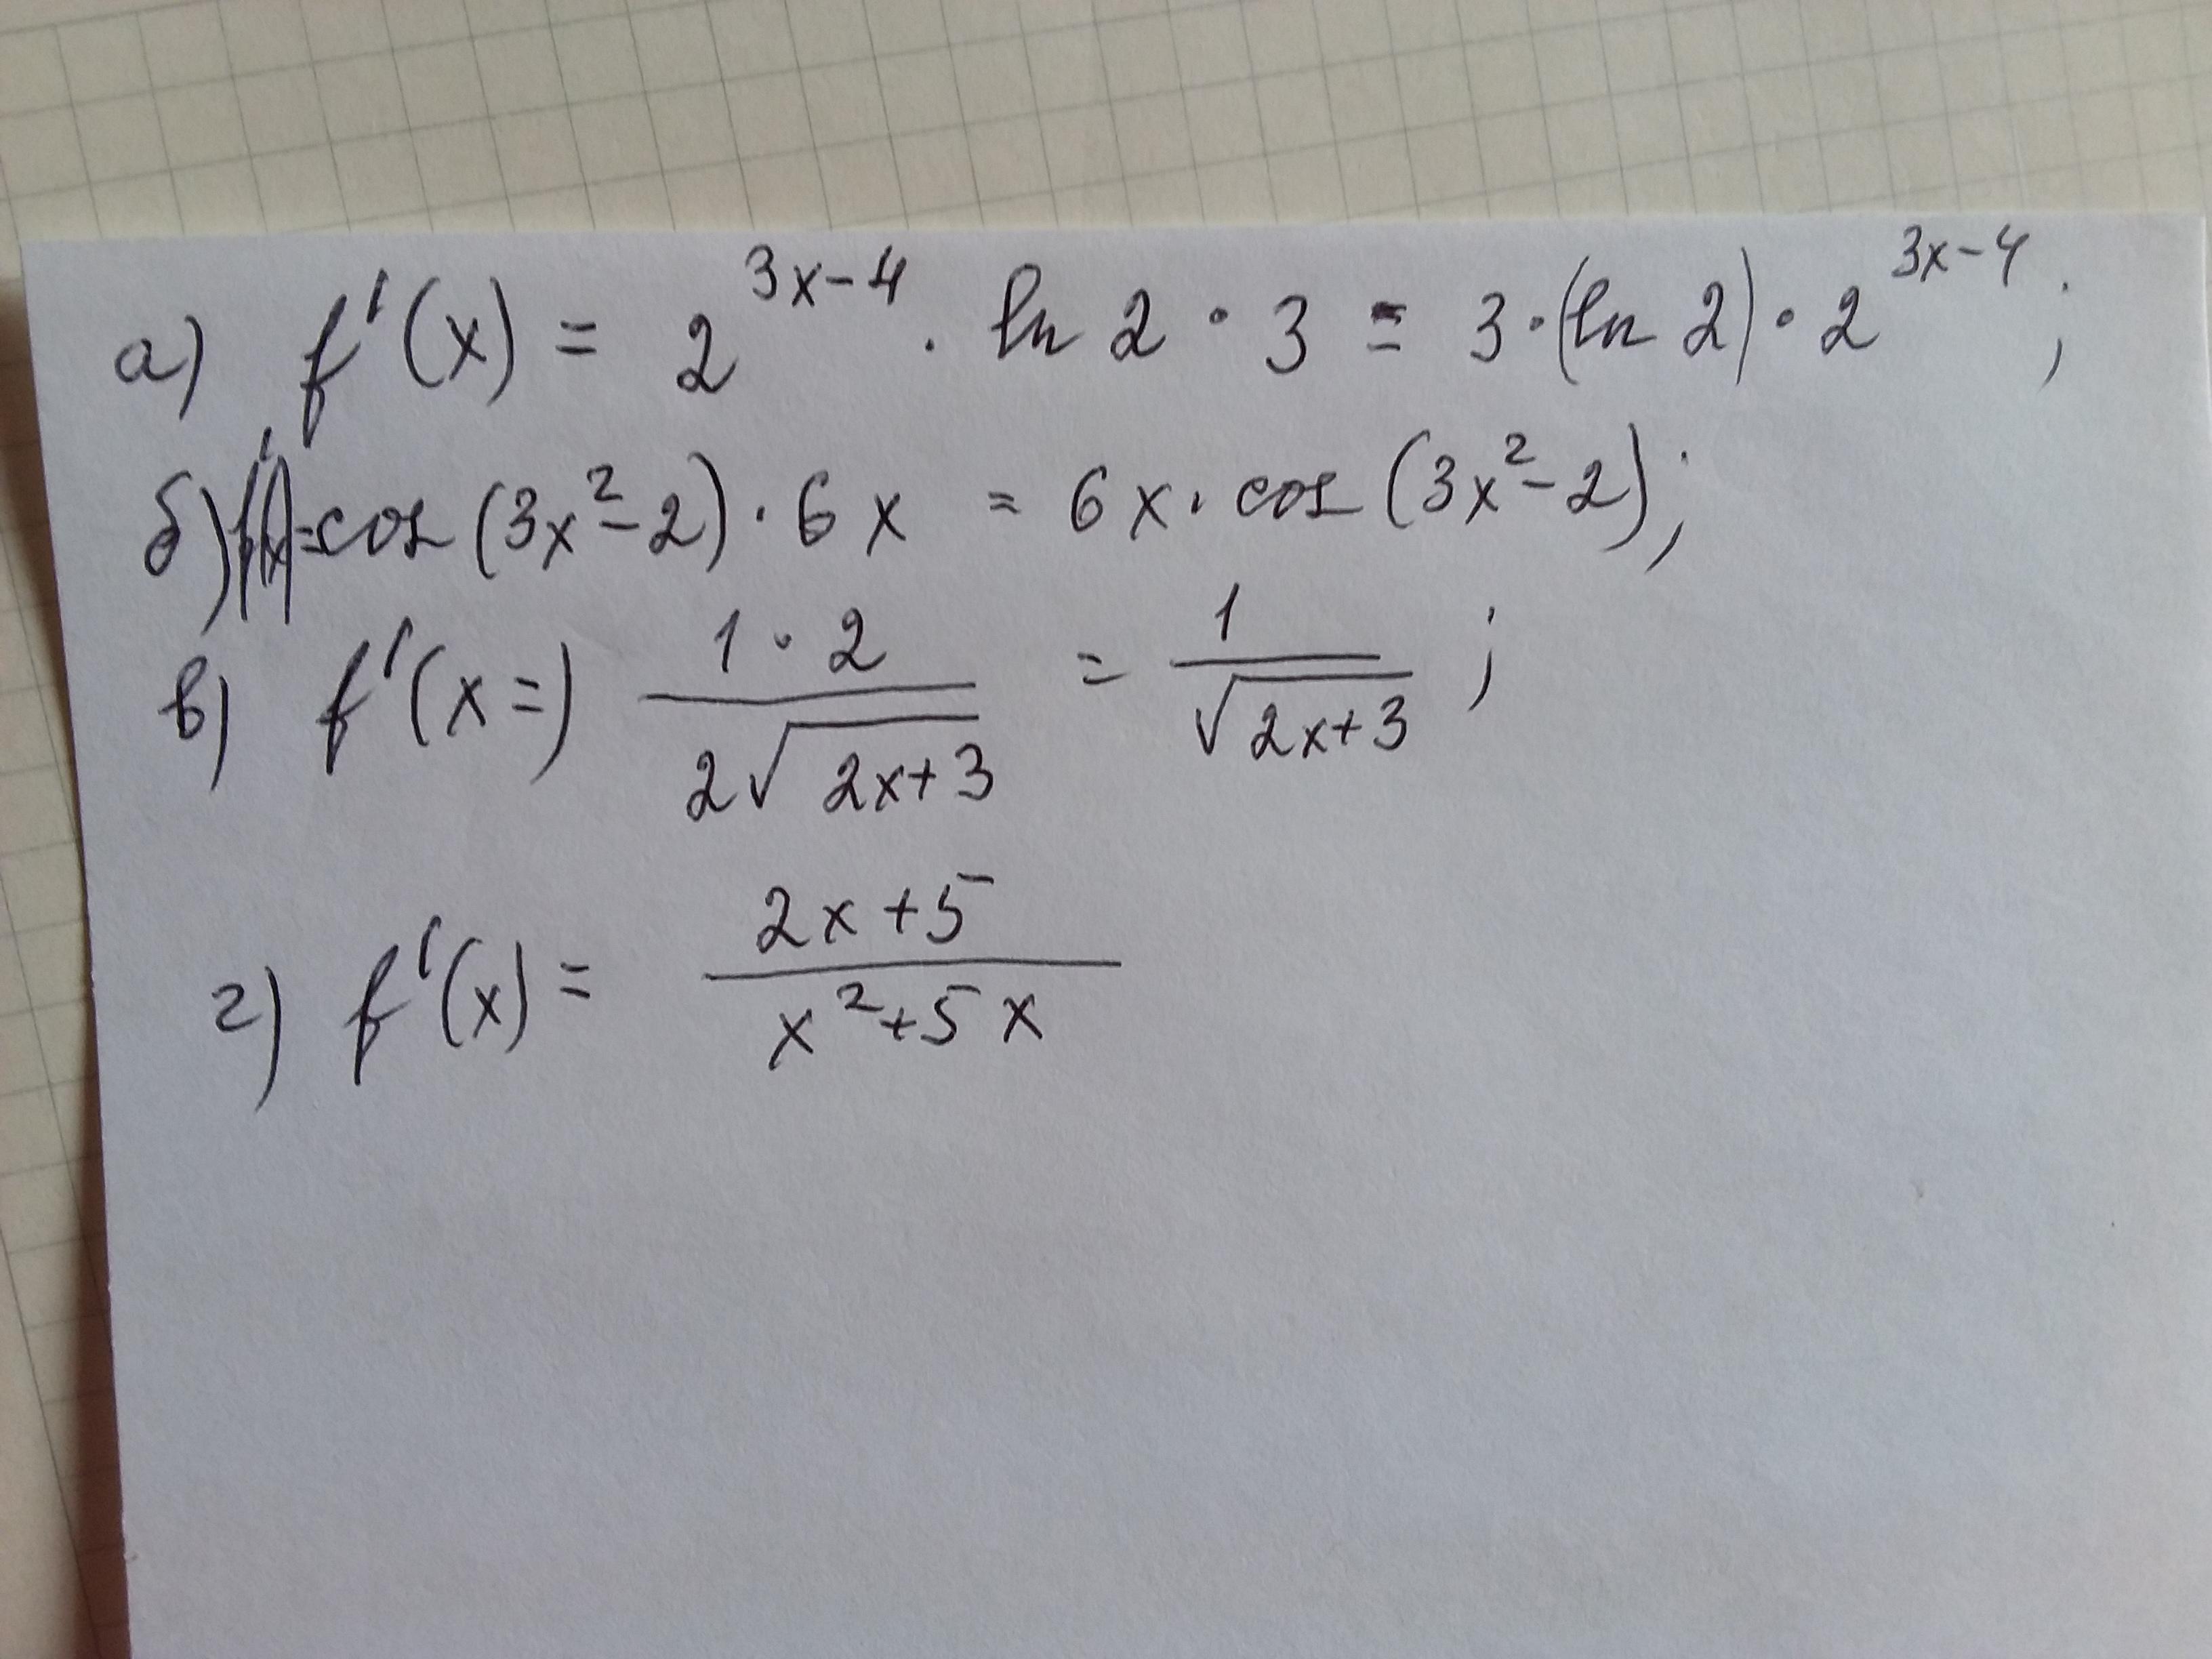 а) f'(x) = 2^(3x-4) · ln 2 · 3 = 3 · (ln 2) · 2^(3x-4) ;
б) f'(x) = cos (3x² - 2) · 6x = 6x · cos (3x² - 2) ;
в) f'(x=) (1 · 2)/(2√(2x+3)) = 1/√(2x+3) ;
г) f'(x) = (2x+5)/(x²+5x)